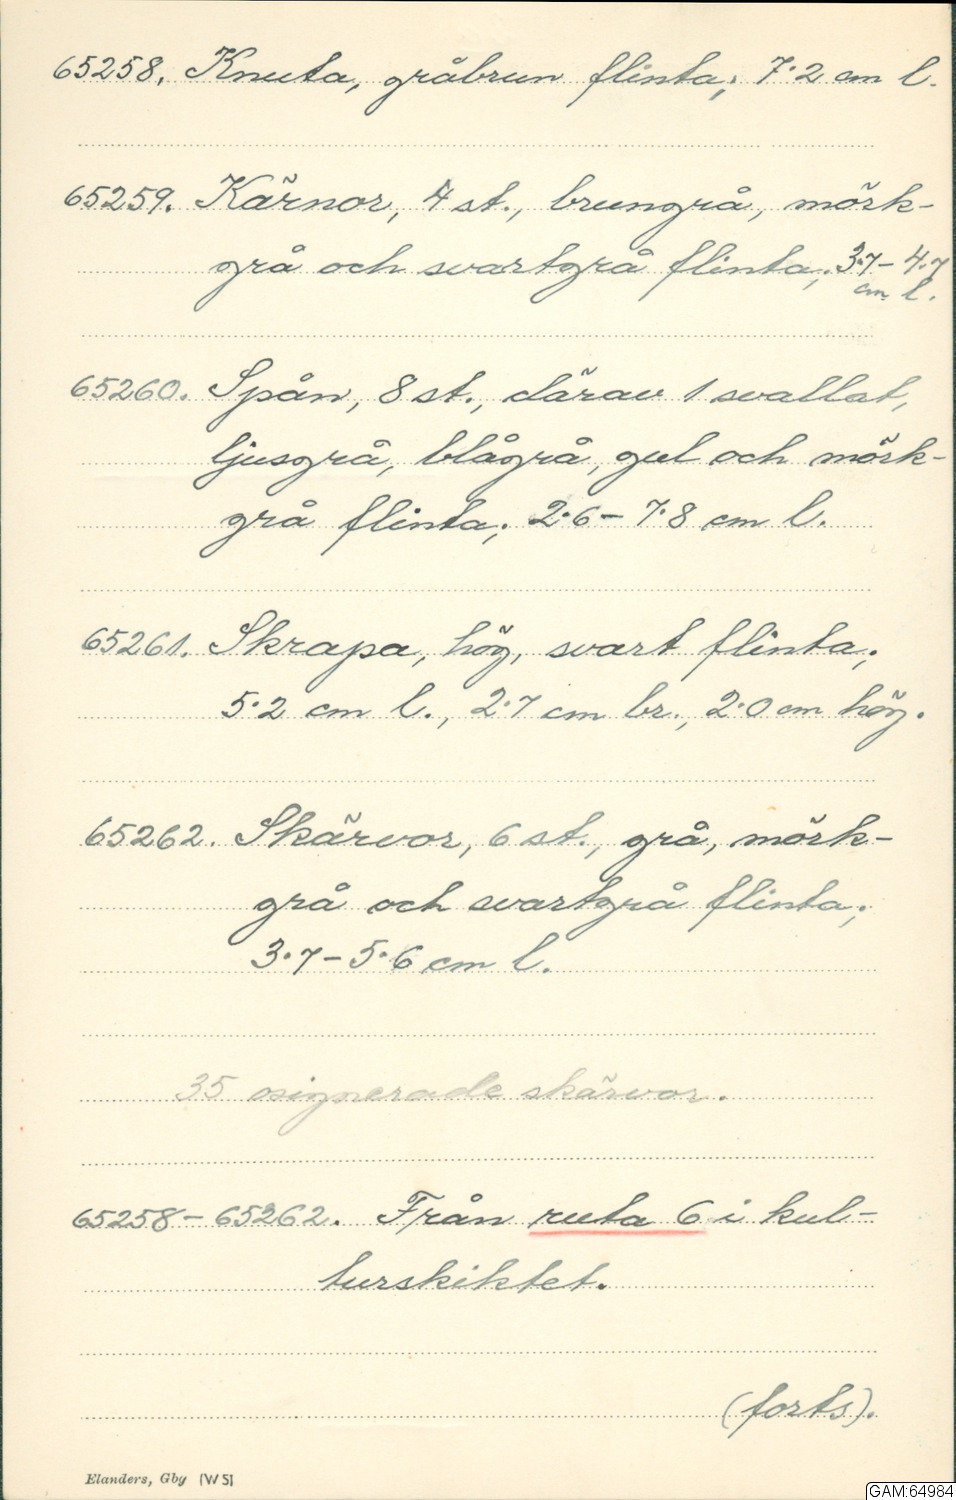 65258. Knuta, gråbrun flinta; 7.2 cm l.
65259. Kärnor, 4 st., brungrå, mörk-
grå och svartgrå flinta; 3.7 – 4.7
cm l.
65260. Spån, 8 st., därav 1 svallat,
ljusgrå, blågrå, gul och mörk-
grå flinta; 2.6 – 7.8 cm l.
65261. Skrapa, hög, svart flinta;
5.2 cm l., 2.7 cm br., 2.0 cm hög.
65262. Skärvor, 6 st., grå, mörk-
grå och svartgrå flinta;
3.7 – 5.6 cm l.
35 osignerade skärvor.
65258 – 65262. Från ruta 6 i kul-
turskiktet.
(forts).
Elanders, Gbg (W 5)
GAM:64984